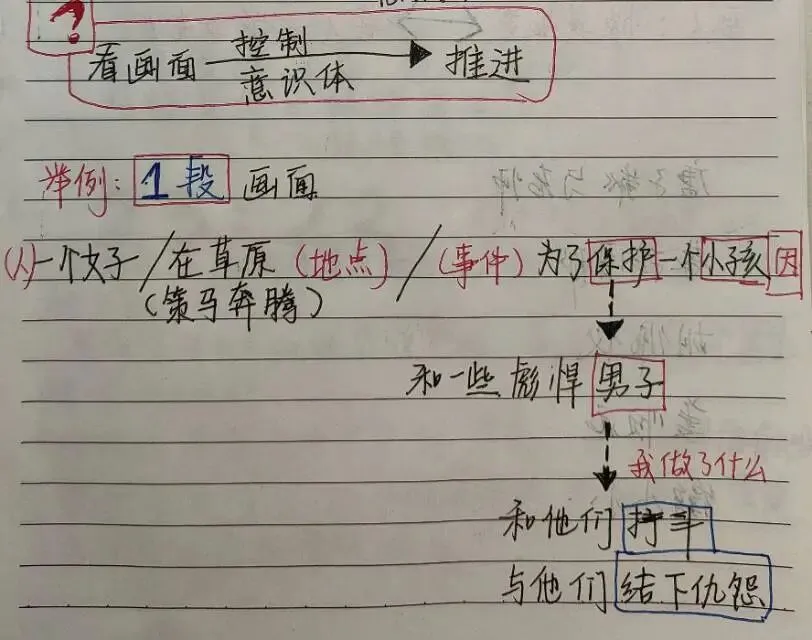 ?
控制
看画面 推进
意识体
举例: 1段 画面
(人)一个女子/在草原(地点)/(事件)为了保护一个小孩 因
(策马奔腾)
和一些彪悍男子
我做了什么
和他们打斗
与他们结下仇怨